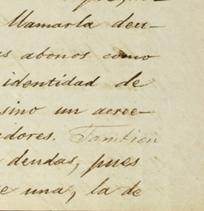 llamarla deu-
s abonos como
identidad de
sino un acree-
dores. Tambien
deudas, pues
e una, la de